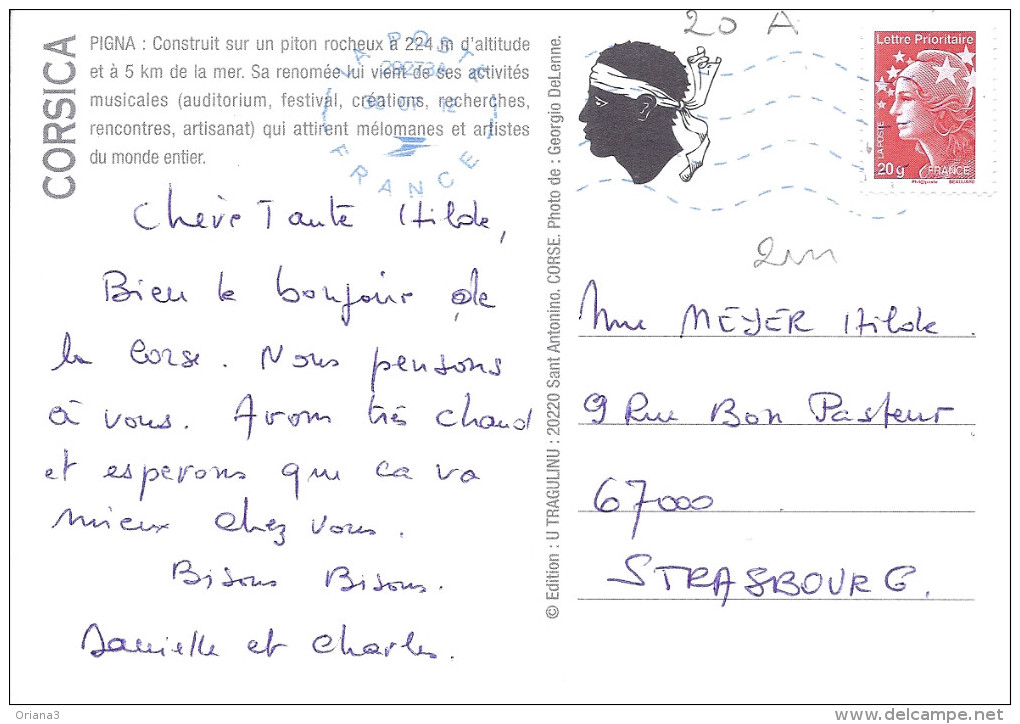 20 A
CORSICA
PIGNA : Construit sur un piton rocheux à 224 m d'altitude
et à 5 km de la mer. Sa renomée lui vient de ses activités
musicales (auditorium, festival, créations, recherches,
rencontres, artisanat) qui attirent mélomanes et artistes
du monde entier.
LA POSTE
FRANCE
Lettre Prioritaire
LA POSTE
20 g
FRANCE
Phil@poste
BEAUJARD
Chère Tante Hilde,
Bien le bonjour de
la Corse. Nous pensons
à vous. Avons très chaud
et esperons que ca va
mieux chez vous.
Bisous Bisous.
Danielle et Charles.
© Edition : U TRAGULINU : 20220 Sant Antonino. CORSE. Photo de : Georgio DeLenne.
Mme MEYER Hilde.
9 Rue Bon Pasteur
67000
STRASBOURG.
Oriana3
delcampe.net